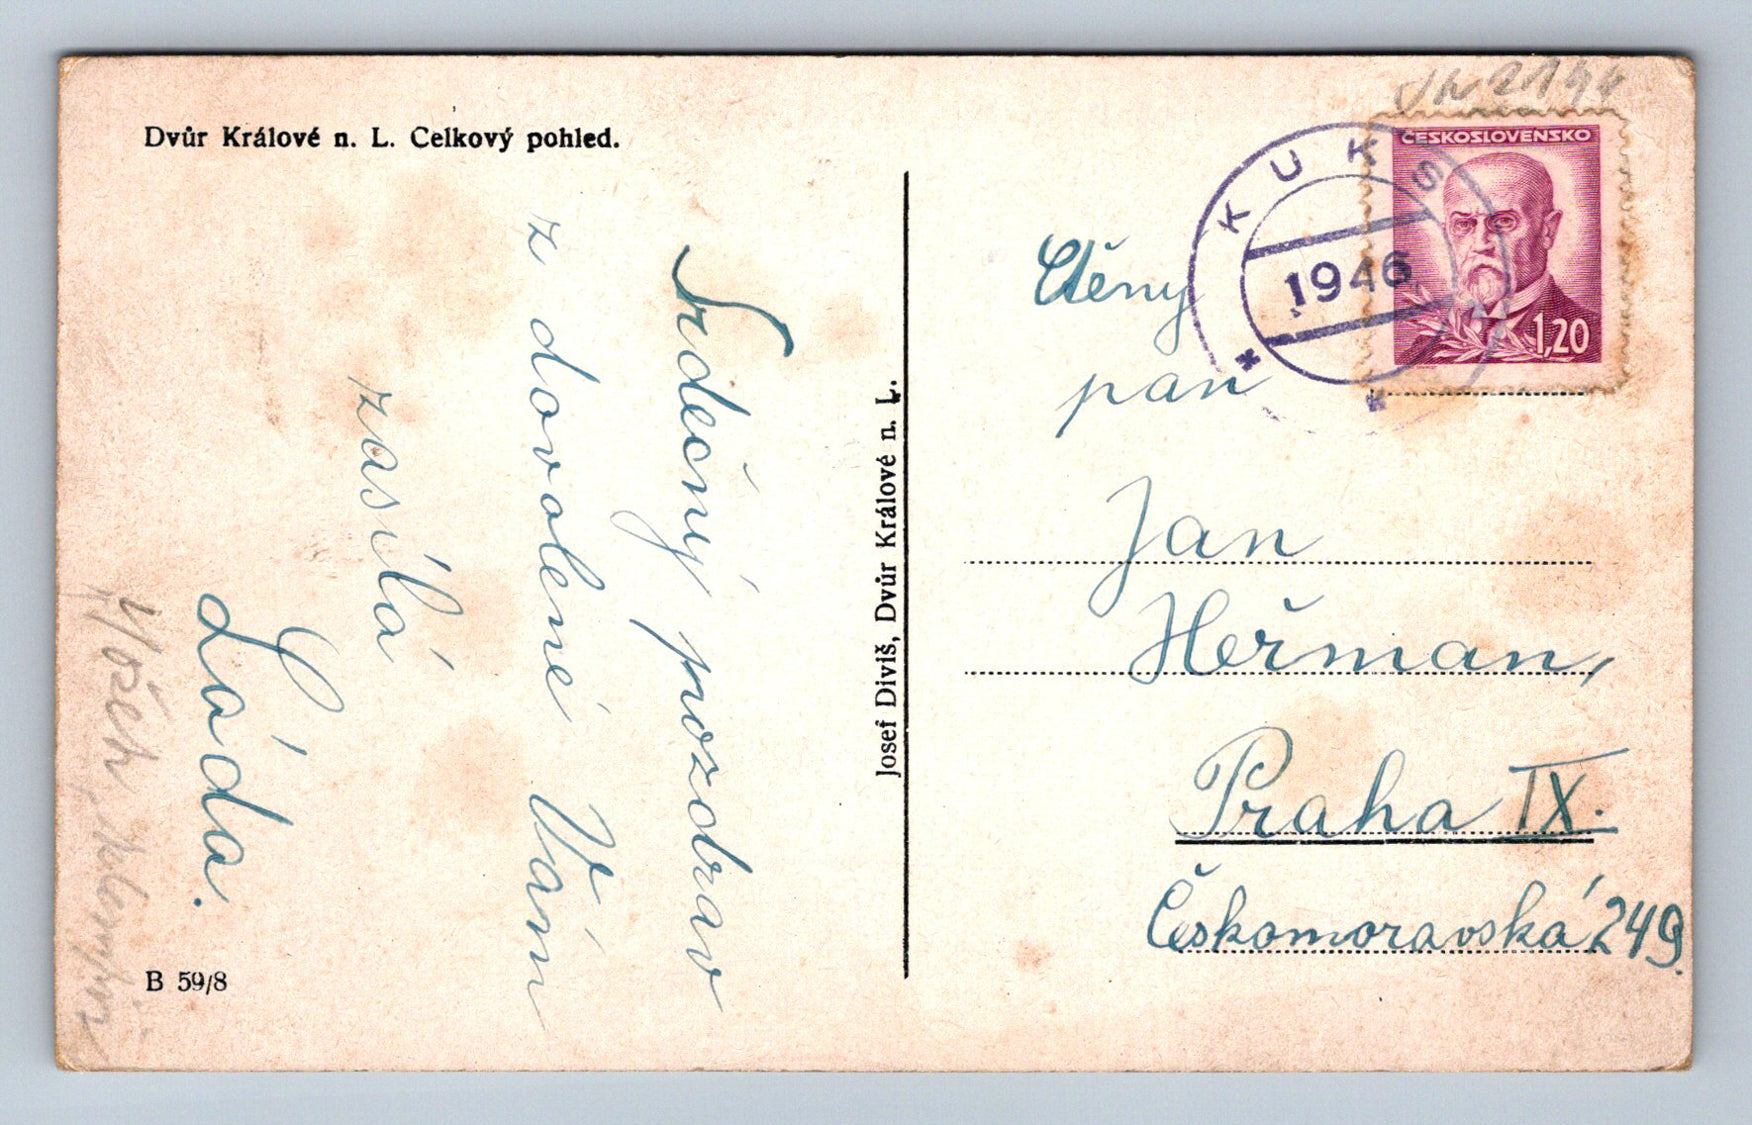 Dvůr Králové n. L. Celkový pohled.
Srdečný pozdrav
z dovolené Vám
zasílá
Láďa.
B 59/8
Josef Diviš, Dvůr Králové n. L.
KUKS
1946
ČESKOSLOVENSKO
1,20
Ctěný
pan
Jan
Heřman,
Praha IX.
Českomoravská 249.